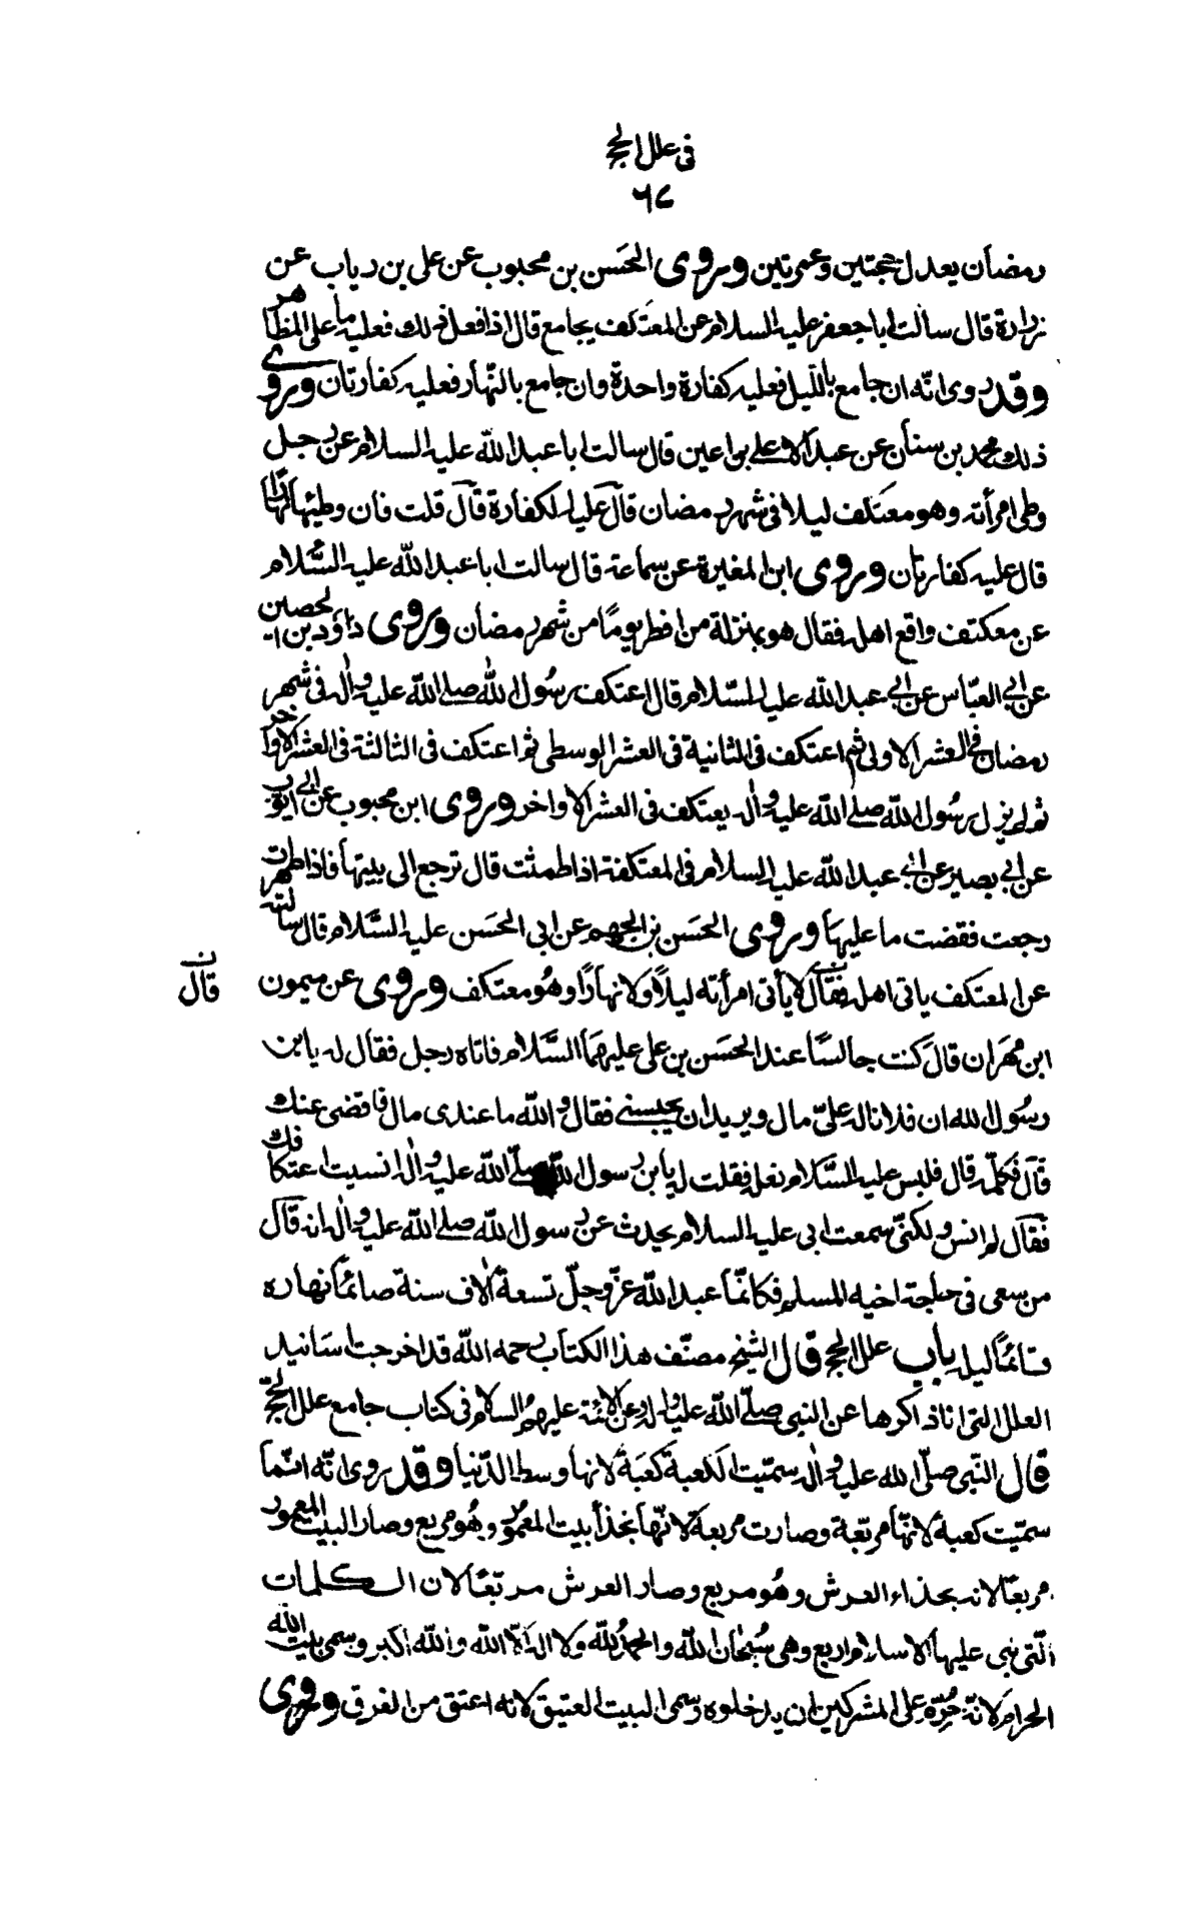 في علل الحج
٦٧
رمضان يعدل حجتين وعمرتين وروى الحسن بن محبوب عن علي بن رياب عن
زرارة قال سالت ابا جعفر عليه السلام عن المعتكف يجامع قال اذا فعل ذلك فعليه ما على المظاهر
وقد روى انّه ان جامع بالليل فعليه كفارة واحدة وان جامع بالنّهار فعليه كفارتان وروى
ذلك محمد بن سنان عن عبد الاعلى بن اعين قال سالت ابا عبد الله عليه السلام عن رجل
وطى امرأته وهو معتكف ليلا في شهر رمضان قال عليه الكفارة قال قلت فان وطيها نهارا
قال عليه كفارتان وروى ابن المغيرة عن سماعة قال سالت ابا عبد الله عليه السّلام
عن معكتف واقع اهله فقال هو بمنزلة من افطر يومًا من شهر رمضان وروى داود بن الحصين
عن ابي العبّاس عن ابي عبد الله عليه السّلام قال اعتكف رسُول الله صلى الله عليه واله في شهر
رمضان في العشر الاولى ثم اعتكف في الثانية في العشر الوسطى ثم اعتكف في الثالثة في العشر الاواخر
ثم لم يزل رسُول الله صلى الله عليه واله يعتكف في العشر الاواخر وروى ابن محبوب عن ابي ايوب
عن ابي بصير عن ابي عبد الله عليه السلام في المعتكفة اذا طمثت قال ترجع الى بيتها فاذا طهرت
رجعت فقضت ما عليها وروى الحسَن بن الجهم عن ابي الحسَن عليه السَّلام قال سالته
عن المعتكف ياتي اهله فقال لا يأتي امرأته ليلاً ولا نهارًا وهُو معتكف وروى عن ميمون
قال ن
ابن مهَران قال كنت جالسًا عند الحسَن بن على عليهمَا السَّلام فاتاه رجل فقال له يا ابن
رسُول الله ان فلانا له عليّ مال ويريد ان يحبسني فقال والله ما عندى مال فاقضى عنك
قال فكلّمه قال فلبس عليه السَّلام نعله فقلت له يا بن رسول الله صلّى الله عليه واله انسيت اعتكافك
فقال لم انس ولكنّي سمعت ابي عليه السلام يحدث عن رسول الله صلى الله عليه واله انه قال
من سعى في حاجة اخيه المسلم فكانمّا عبد الله عزّ وجلّ تسعة الاف سنة صائمًا نهاره
قائمًا ليله باب علل الحج قال الشيخ مصنّف هذا الكتاب رحمه الله قد اخرجت اسَانيد
العلل التي انا ذاكرها عن النبي صلّى الله عليه واله وعن الائمّة عليهمُ السلام في كتاب جامع علل الحجّ
قال النّبي صلّى الله عليه واله سمّيت الكعبة كعبَة لانها وسط الدّنيا وقد روى انّه انّما
سمّيت كعبة لانّها مربّعة وصارت مربعة لانّها بحذأ بيت المعمُور وهُو مربع وصار البيت المعمور
مربعًا لانه بحذاء العرش وهُو مربع وصار العرش مربّعًا لان الكلمات
الّتي بني عليها الاسلام اربع وهي سُبحان الله والحمدُ لله ولا اله الّا الله والله اكبر وسمي بيت الله
الحرام لانّه حُرّم على المشركين ان يدخلوه وسمى البيت العتيق لانه اعتق من الغرق وروى